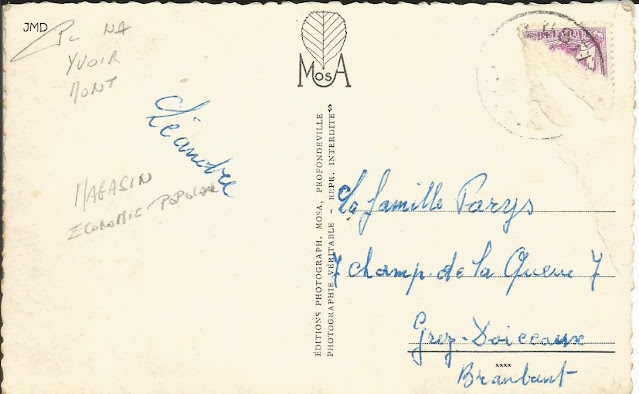 JMD
NA
YVOIR
MONT
Léandre
MAGASIN
ECONOMIE POPULAIRE
MOSA
ÉDITIONS PHOTOGRAPH. MOSA, PROFONDEVILLE
PHOTOGRAPHIE VÉRITABLE - REPR. INTERDITE
BELGIQUE
La famille Parys
7 Champ de la Queue 7
Grez-Doiceaux
****
Branbant